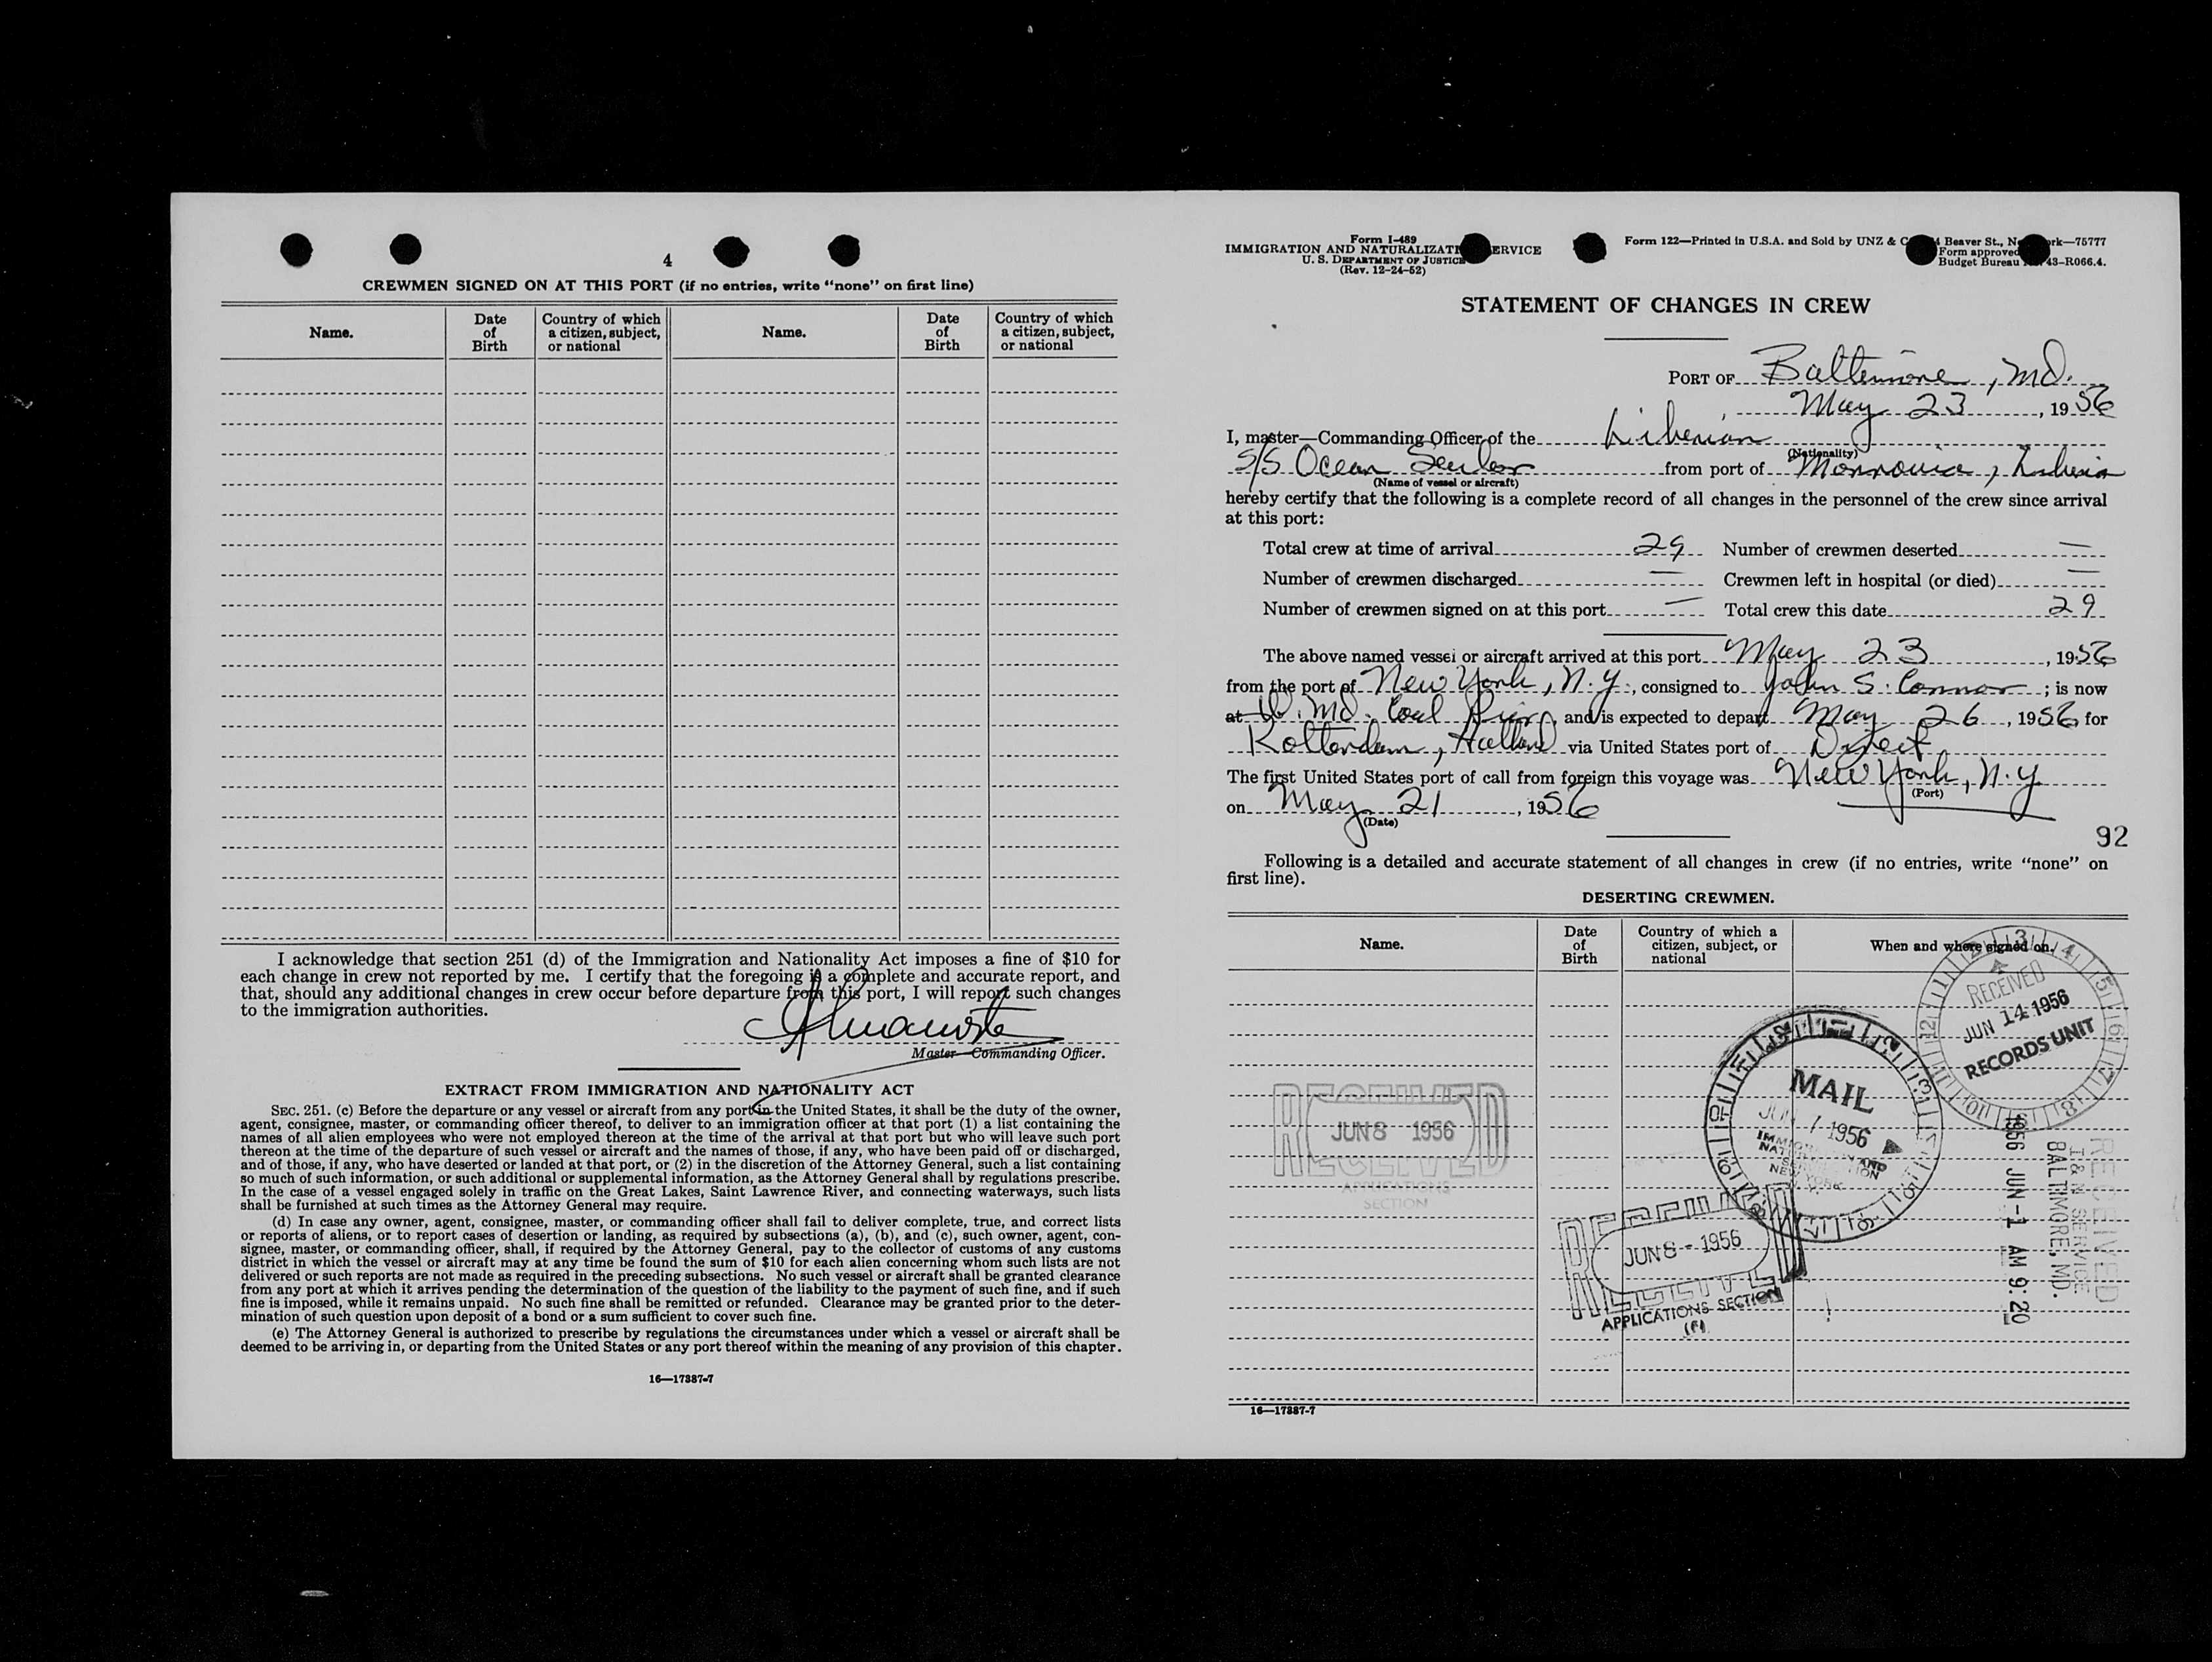 4
CREWMEN SIGNED ON AT THIS PORT (if no entries, write “none” on first line)
Name. Date of Birth Country of which a citizen, subject, or national Name. Date of Birth Country of which a citizen, subject, or national
I acknowledge that section 251 (d) of the Immigration and Nationality Act imposes a fine of $10 for
each change in crew not reported by me. I certify that the foregoing is a complete and accurate report, and
that, should any additional changes in crew occur before departure from this port, I will report such changes
to the immigration authorities.
Master—Commanding Officer.
EXTRACT FROM IMMIGRATION AND NATIONALITY ACT
SEC. 251. (c) Before the departure or any vessel or aircraft from any port in the United States, it shall be the duty of the owner,
agent, consignee, master, or commanding officer thereof, to deliver to an immigration officer at that port (1) a list containing the
names of all alien employees who were not employed thereon at the time of the arrival at that port but who will leave such port
thereon at the time of the departure of such vessel or aircraft and the names of those, if any, who have been paid off or discharged,
and of those, if any, who have deserted or landed at that port, or (2) in the discretion of the Attorney General, such a list containing
so much of such information, or such additional or supplemental information, as the Attorney General shall by regulations prescribe.
In the case of a vessel engaged solely in traffic on the Great Lakes, Saint Lawrence River, and connecting waterways, such lists
shall be furnished at such times as the Attorney General may require.
(d) In case any owner, agent, consignee, master, or commanding officer shall fail to deliver complete, true, and correct lists
or reports of aliens, or to report cases of desertion or landing, as required by subsections (a), (b), and (c), such owner, agent, con-
signee, master, or commanding officer, shall, if required by the Attorney General, pay to the collector of customs of any customs
district in which the vessel or aircraft may at any time be found the sum of $10 for each alien concerning whom such lists are not
delivered or such reports are not made as required in the preceding subsections. No such vessel or aircraft shall be granted clearance
from any port at which it arrives pending the determination of the question of the liability to the payment of such fine, and if such
fine is imposed, while it remains unpaid. No such fine shall be remitted or refunded. Clearance may be granted prior to the deter-
mination of such question upon deposit of a bond or a sum sufficient to cover such fine.
(e) The Attorney General is authorized to prescribe by regulations the circumstances under which a vessel or aircraft shall be
deemed to be arriving in, or departing from the United States or any port thereof within the meaning of any provision of this chapter.
16—17887-7
Form I-489
IMMIGRATION AND NATURALIZATI ERVICE
U. S. DEPARTMENT OF JUSTICE
(Rev. 12-24-52)
Form 122—Printed in U.S.A. and Sold by UNZ & C 4 Beaver St., N rk—75777
Form approved
Budget Bureau 43-R066.4.
STATEMENT OF CHANGES IN CREW
PORT OF Baltimore, Md.
May 23, 1956
I, master—Commanding Officer of the Liberian
(Nationality)
S/S Ocean from port of Monrovia, Liberia
(Name of vessel or aircraft)
hereby certify that the following is a complete record of all changes in the personnel of the crew since arrival
at this port:
Total crew at time of arrival 29 Number of crewmen deserted —
Number of crewmen discharged — Crewmen left in hospital (or died) —
Number of crewmen signed on at this port — Total crew this date 29
The above named vessel or aircraft arrived at this port May 23, 1956
from the port of New York, N.Y., consigned to John S. Connor; is now
at W. Md. Coal Pier, and is expected to depart May 26, 1956 for
Rotterdam, Holland via United States port of Direct
The first United States port of call from foreign this voyage was New York, N.Y
(Port)
on May 21, 1956
(Date)
92
Following is a detailed and accurate statement of all changes in crew (if no entries, write “none” on
first line).
DESERTING CREWMEN.
Name. Date of Birth Country of which a citizen, subject, or national When and where signed on.
RECEIVED
JUN 14 1956
RECORDS UNIT
MAIL
JUN 7 1956
IMMIGRATION AND
NEW YORK
RECEIVED
JUN 8 1956
RECEIVED
APPLICATIONS
SECTION
RECEIVED
JUN 8 - 1956
RECEIVED
APPLICATIONS SECTION
RECEIVED
I & N SERVICE
BALTIMORE, MD.
1956 JUN -1 AM 9:20
16—17887-7